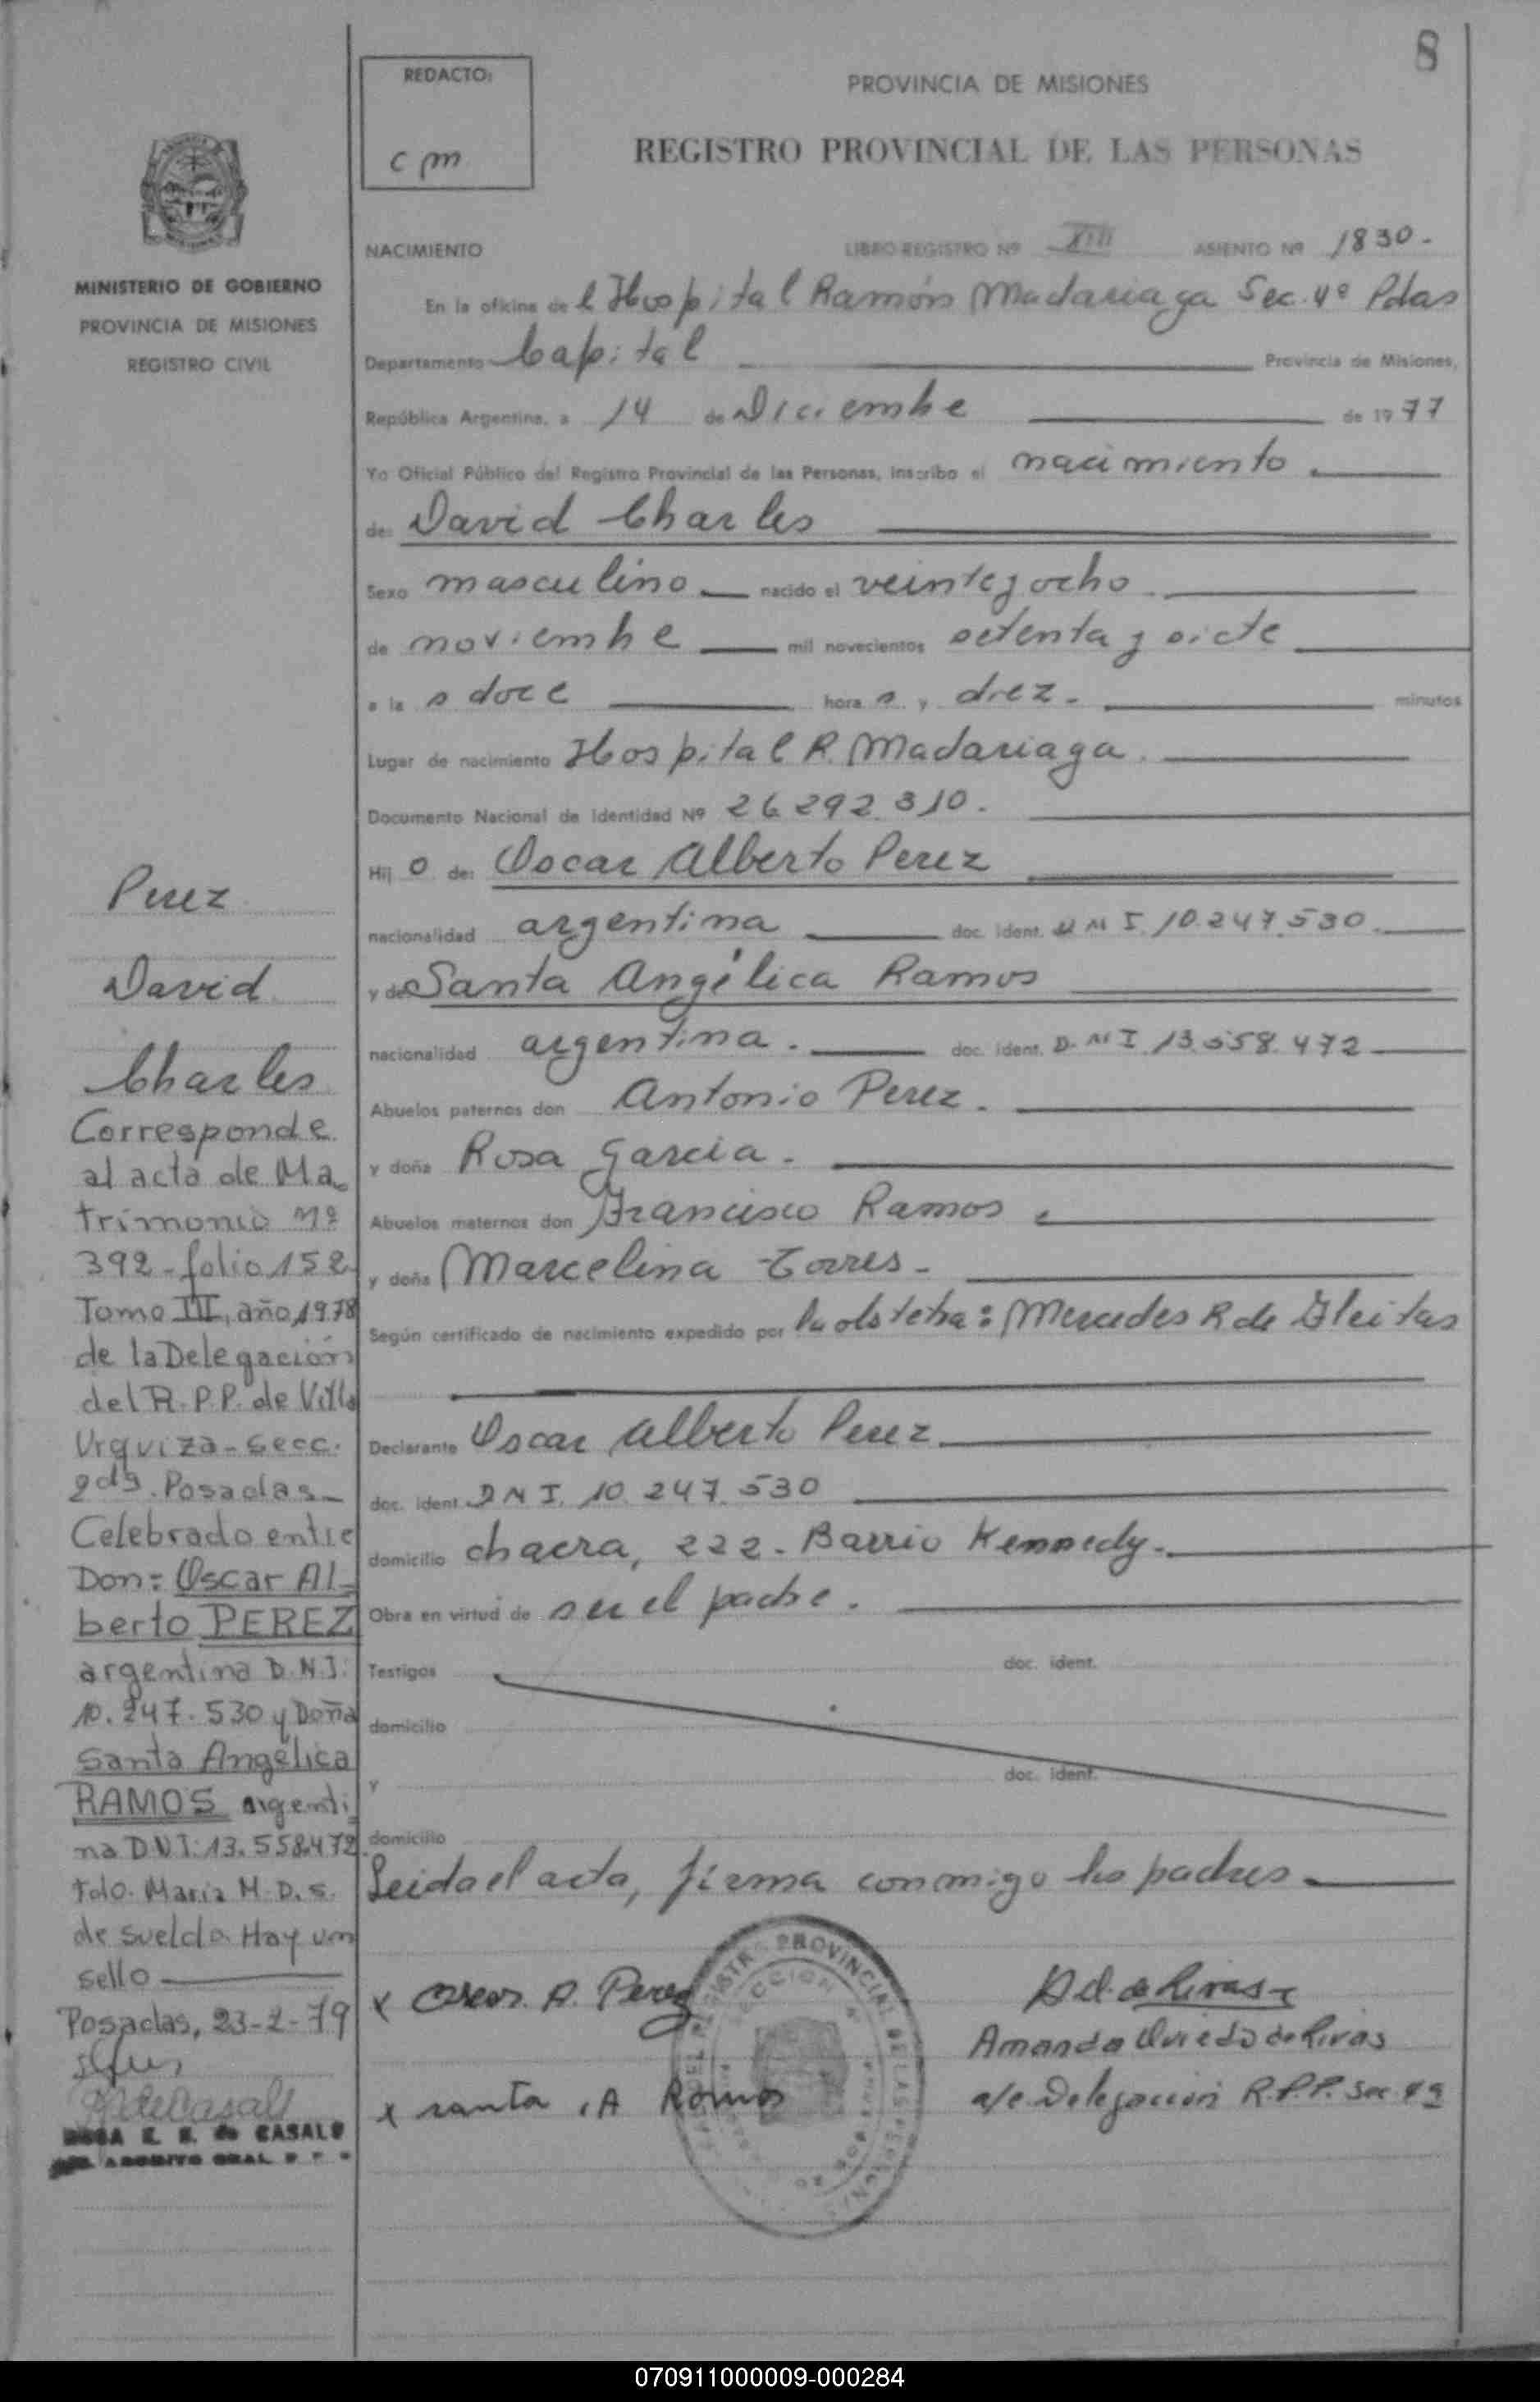 8
REDACTO:
cpm
PROVINCIA DE MISIONES
REGISTRO PROVINCIAL DE LAS PERSONAS
MINISTERIO DE GOBIERNO
PROVINCIA DE MISIONES
REGISTRO CIVIL
NACIMIENTO LIBRO REGISTRO Nº XIII ASIENTO Nº 1830.-
En la oficina de l Hospital Ramón Madariaga Sec. 4º Pdas
Departamento Capital Provincia de Misiones,
República Argentina, a 14 de Diciembre de 1977
Yo Oficial Público del Registro Provincial de las Personas, inscribo el nacimiento
de: David Charles
Sexo masculino nacido el veintey ocho
de noviembre mil novecientos setenta y siete
a la s doce hora s y diez.- minutos
Lugar de nacimiento Hospital R. Madariaga.
Documento Nacional de Identidad Nº 26.292.310.-
Hij o de: Oscar Alberto Perez
nacionalidad argentina doc. ident. D N I. 10.247.530.
y de Santa Angélica Ramos
nacionalidad argentina.- doc. ident. D. N I. 13.558.472
Abuelos paternos don Antonio Perez.
y doña Rosa Garcia.-
Abuelos maternos don Francisco Ramos
y doña Marcelina Torres.-
Según certificado de nacimiento expedido por la obstetra: Mercedes R de Gleitas
Declarante Oscar Alberto Perez
doc. ident. D N I. 10.247.530
domicilio chacra, 222.- Barrio Kennedy.-
Obra en virtud de ser el padre.
Testigos doc. ident.
domicilio
y doc. ident.
domicilio
Leida el acta, firma conmigo los padres.
x Oscar. A. Perez
x santa .A Ramos
Amanda Oviedo de Rivas
a/c Delegación R.P.P. Sec. 4ª
Perez
David
Charles
Corresponde
al acta de Ma-
trimonio Nº
392-folio 152
Tomo III, año 1978
de la Delegación
del R.P.P. de Villa
Urquiza-Secc.
2da. Posadas-
Celebrado entre
Don: Oscar Al-
berto PEREZ
argentina D.N.I.
10.247.530 y Doña
Santa Angélica
RAMOS argenti
na DNI: 13.558.472
fdo. Maria H. D. S.
de Sueldo. Hay un
sello
Posadas, 23-2-79
de CASALS
070911000009-000284